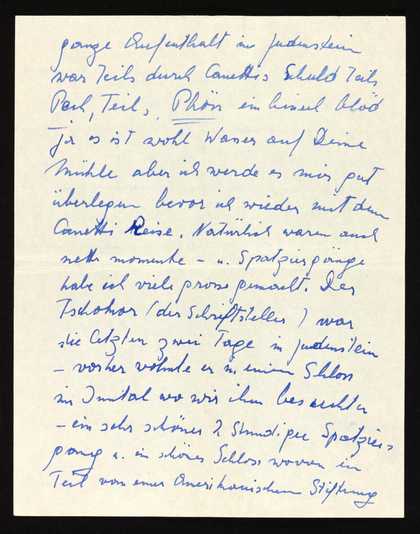 ganze Aufenthalt in Judenstein
war Teils durch Canettis Schuld Teils
Pech, Teils, Phön ein bissel blöd
Ja es ist wohl Wasser auf Deine
Mühle aber ich werde es mir gut
überlegen bevor ich wieder mit dem
Canetti Reise. Natürlich waren auch
nette momente – u. Spatziergänge
habe ich viele grosse gemacht. Der
(der Schriftsteller) war
die letzten zwei Tage in Judenstein
– vorher wohnte er in einem Schloss
im Inntal wo wir ihn besuchten
– ein sehr schöner 2 Stundiger Spatzier-
gang u. ein schönes Schloss wovon ein
Teil von einer Amerikanischen Stiftung